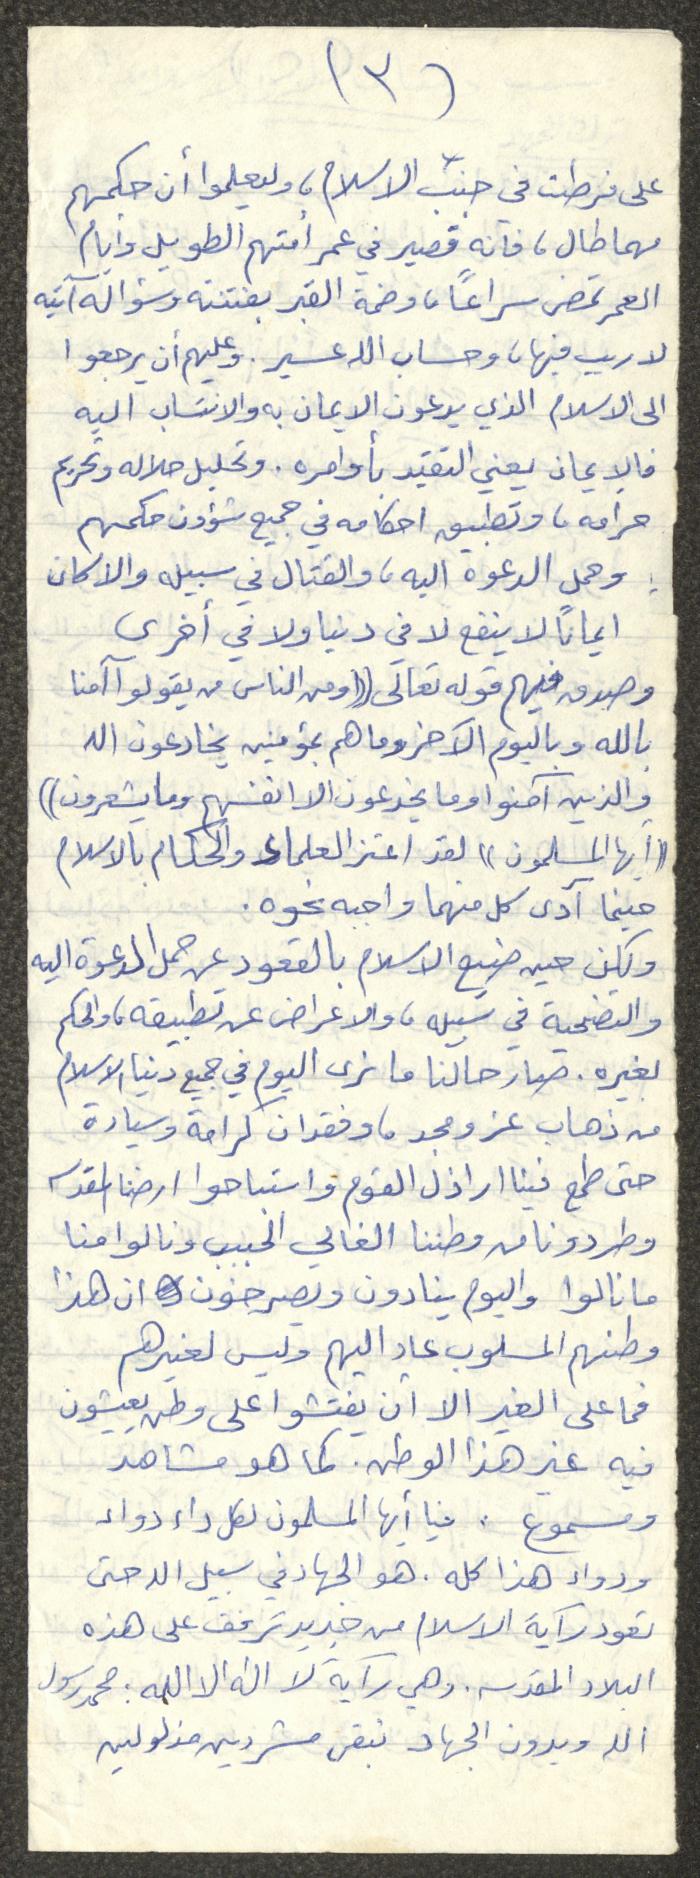 (٣)
على فرطت في جنب الاسلام، وليعلموا أن حكمهم
مهما طال، فانه قصير في عمر أمتهم الطويل وأيام
العمر تمضي سراعًا، وضمة القبر بفتنته وسؤاله آتيه
لا ريب فيها، وحساب الله عسير. وعليهم أن يرجعوا
الى الاسلام الذي يدعون الايمان به والانتساب اليه
فالايمان يعني التقيد بأوامره. وتحليل حلاله وتحريم
حرامه، وتطبيق احكامه في جميع شؤون حكمهم
وحمل الدعوة اليه، والقتال في سبيله والا كان
ايمانًا لا ينفع لا في دنيا ولا في أخرى
وصدق فيهم قوله تعالى ((ومن الناس من يقولوا آمنا
بالله وباليوم الآخر وما هم بمؤمنين يخادعون الله
والذين آمنوا وما يخدعون الا انفسهم وما يشعرون))
((أيها المسلمون)) لقد اعتز العلماء والحكام بالاسلام
حينما أدى كل منهما واجبه نحوه.
ولكن حين ضيع الاسلام بالقعود عن حمل الدعوة اليه
والتضحية في سبيله، والاعراض عن تطبيقه، والحكم
لغيره. صار حالنا ما نرى اليوم في جميع دنيا الاسلام
من ذهاب عز ومجد، وفقدان كرامة وسيادة
حتى طمع فينا اراذل القوم واستباحوا ارضنا المقدسه
وطردونا من وطننا الغالي الحبيب ونالوا منا
ما نالوا واليوم ينادون ويصرخون ان هذا
وطنهم المسلوب عاد اليهم وليس لغيرهم
فما على الغير الا أن يفتشوا على وطن يعيشون
فيه غير هذا الوطن. كما هو مشاهد
ومسموع. فيا أيها المسلمون لكل داء دواء
ودواء هذا كله. هو الجهاد في سبيل الله حتى
تعود راية الاسلام من جديد ترفف على هذه
البلاد المقدسه. وهي راية لا اله الا الله. محمد رسول
الله وبدون الجهاد نبقى مشردين مذلولين